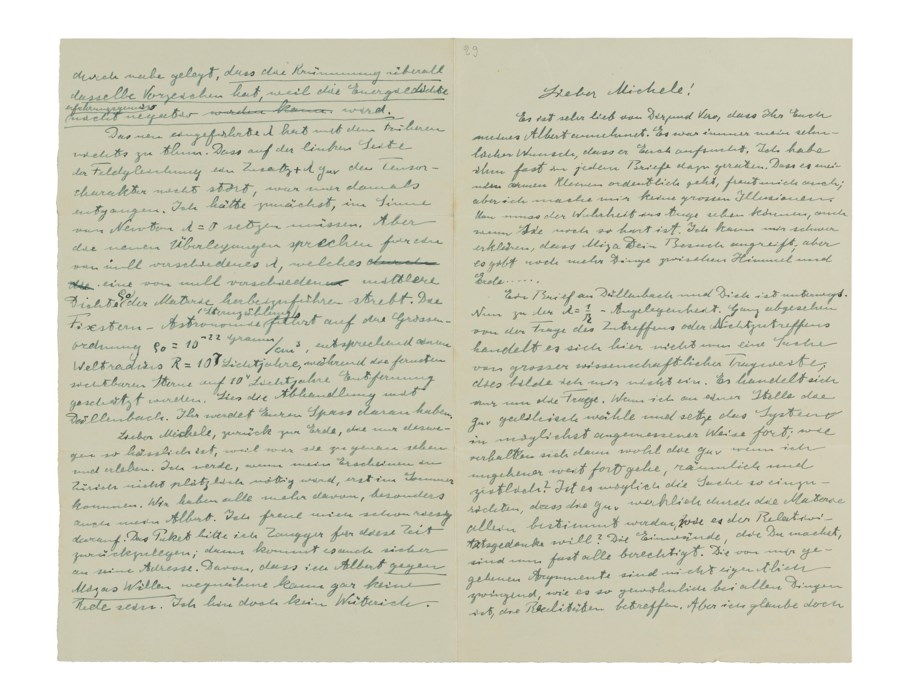 durch nahe gelegt, dass die Krümmung überall
dasselbe Vorzeichen hat, weil die Energiedichte
erfahrungsgemäss
nicht negativ werden kann wird.
Das neu eingeführte λ hat mit dem früheren
nichts zu thun. Dass auf der linken Seite
der Feldgleichung ein Zusatz + λ gμν den Tensor-
charakter nicht stört, war mir damals
entgangen. Ich hätte zunächst, im Sinne
von Newton λ = 0 setzen müssen. Aber
die neuen Überlegungen sprechen für ein
von null verschiedenes λ, welches durch
die eine von null verschiedene mittlere
Dichte ρ0 der Materie herbeizuführen strebt. Die
Sternzählung
Fixstern-Astronomie führt auf die Grössen-
ordnung ρ0 = 10^-22 gramm/cm³, entsprechend einem
Weltradius R = 10^7 Lichtjahre, während die fernsten
sichtbaren Sterne auf 10^4 Lichtjahre Entfernung
geschätzt werden. Lies die Abhandlung mit
Dällenbach. Ihr werdet Euren Spass daran haben.
Lieber Michele, zurück zur Erde, die nur deswe-
gen so hässlich ist, weil wir sie zu genau sehen
und erleben. Ich werde, wenn mein Erscheinen in
Zürich nicht plötzlich nötig wird, erst im Sommer
kommen. Wir haben alle mehr davon, besonders
auch mein Albert. Ich freue mich schon riesig
darauf. Das Paket bitte ich Zangger für diese Zeit
zurückzulegen; dann kommt es auch sicher
an seine Adresse. Davon, dass ich Albert gegen
Mizas Willen wegnähme kann gar keine
Rede sein. Ich bin doch kein Wüterich.
29
Lieber Michele!
Es ist sehr lieb von Dir und Vero, dass Ihr Euch
meines Albert annehmet. Es war immer mein sehn-
licher Wunsch, dass er Euch aufsucht. Ich habe
ihm fast in jedem Briefe dazu geraten. Dass es mei-
nem armen Kleinen ordentlich geht, freut mich auch;
aber ich mache mir keine grossen Illusionen.
Man muss der Wahrheit ins Auge sehen können, auch
wenn sie noch so hart ist. Ich kann mir schwer
erklären, dass Miza Dein Besuch angreift, aber
es gibt noch mehr Dinge zwischen Himmel und
Erde......
Ein Brief an Dällenbach und Dich ist unterwegs.
Nun zu der λ = 1/R² - Angelegenheit. Ganz abgesehen
von der Frage des Zutreffens oder Nichtzutreffens
handelt es sich hier nicht um eine Sache
von grosser wissenschaftlicher Tragweite;
dies bilde ich mir nicht ein. Es handelt sich
nur um die Frage. Wenn ich an einer Stelle die
gμν geldleisch wähle und setze das System
in möglichst angemessener Weise fort; wie
verhalten sich dann wohl die gμν wenn ich
ungeheuer weit fort gehe, räumlich und
zeitlich? Ist es möglich die Sache so einzu-
richten, dass die gμν wirklich durch die Materie
allein bestimmt werden, wie es der Relativi-
tätsgedanke will? Die Einwände, die Du machst,
sind nun fast alle berechtigt. Die von mir ge-
gebenen Argumente sind nicht eigentlich
zwingend, wie es so gewöhnlich bei allen Dingen
ist, die Realitäten betreffen. Aber ich glaube doch